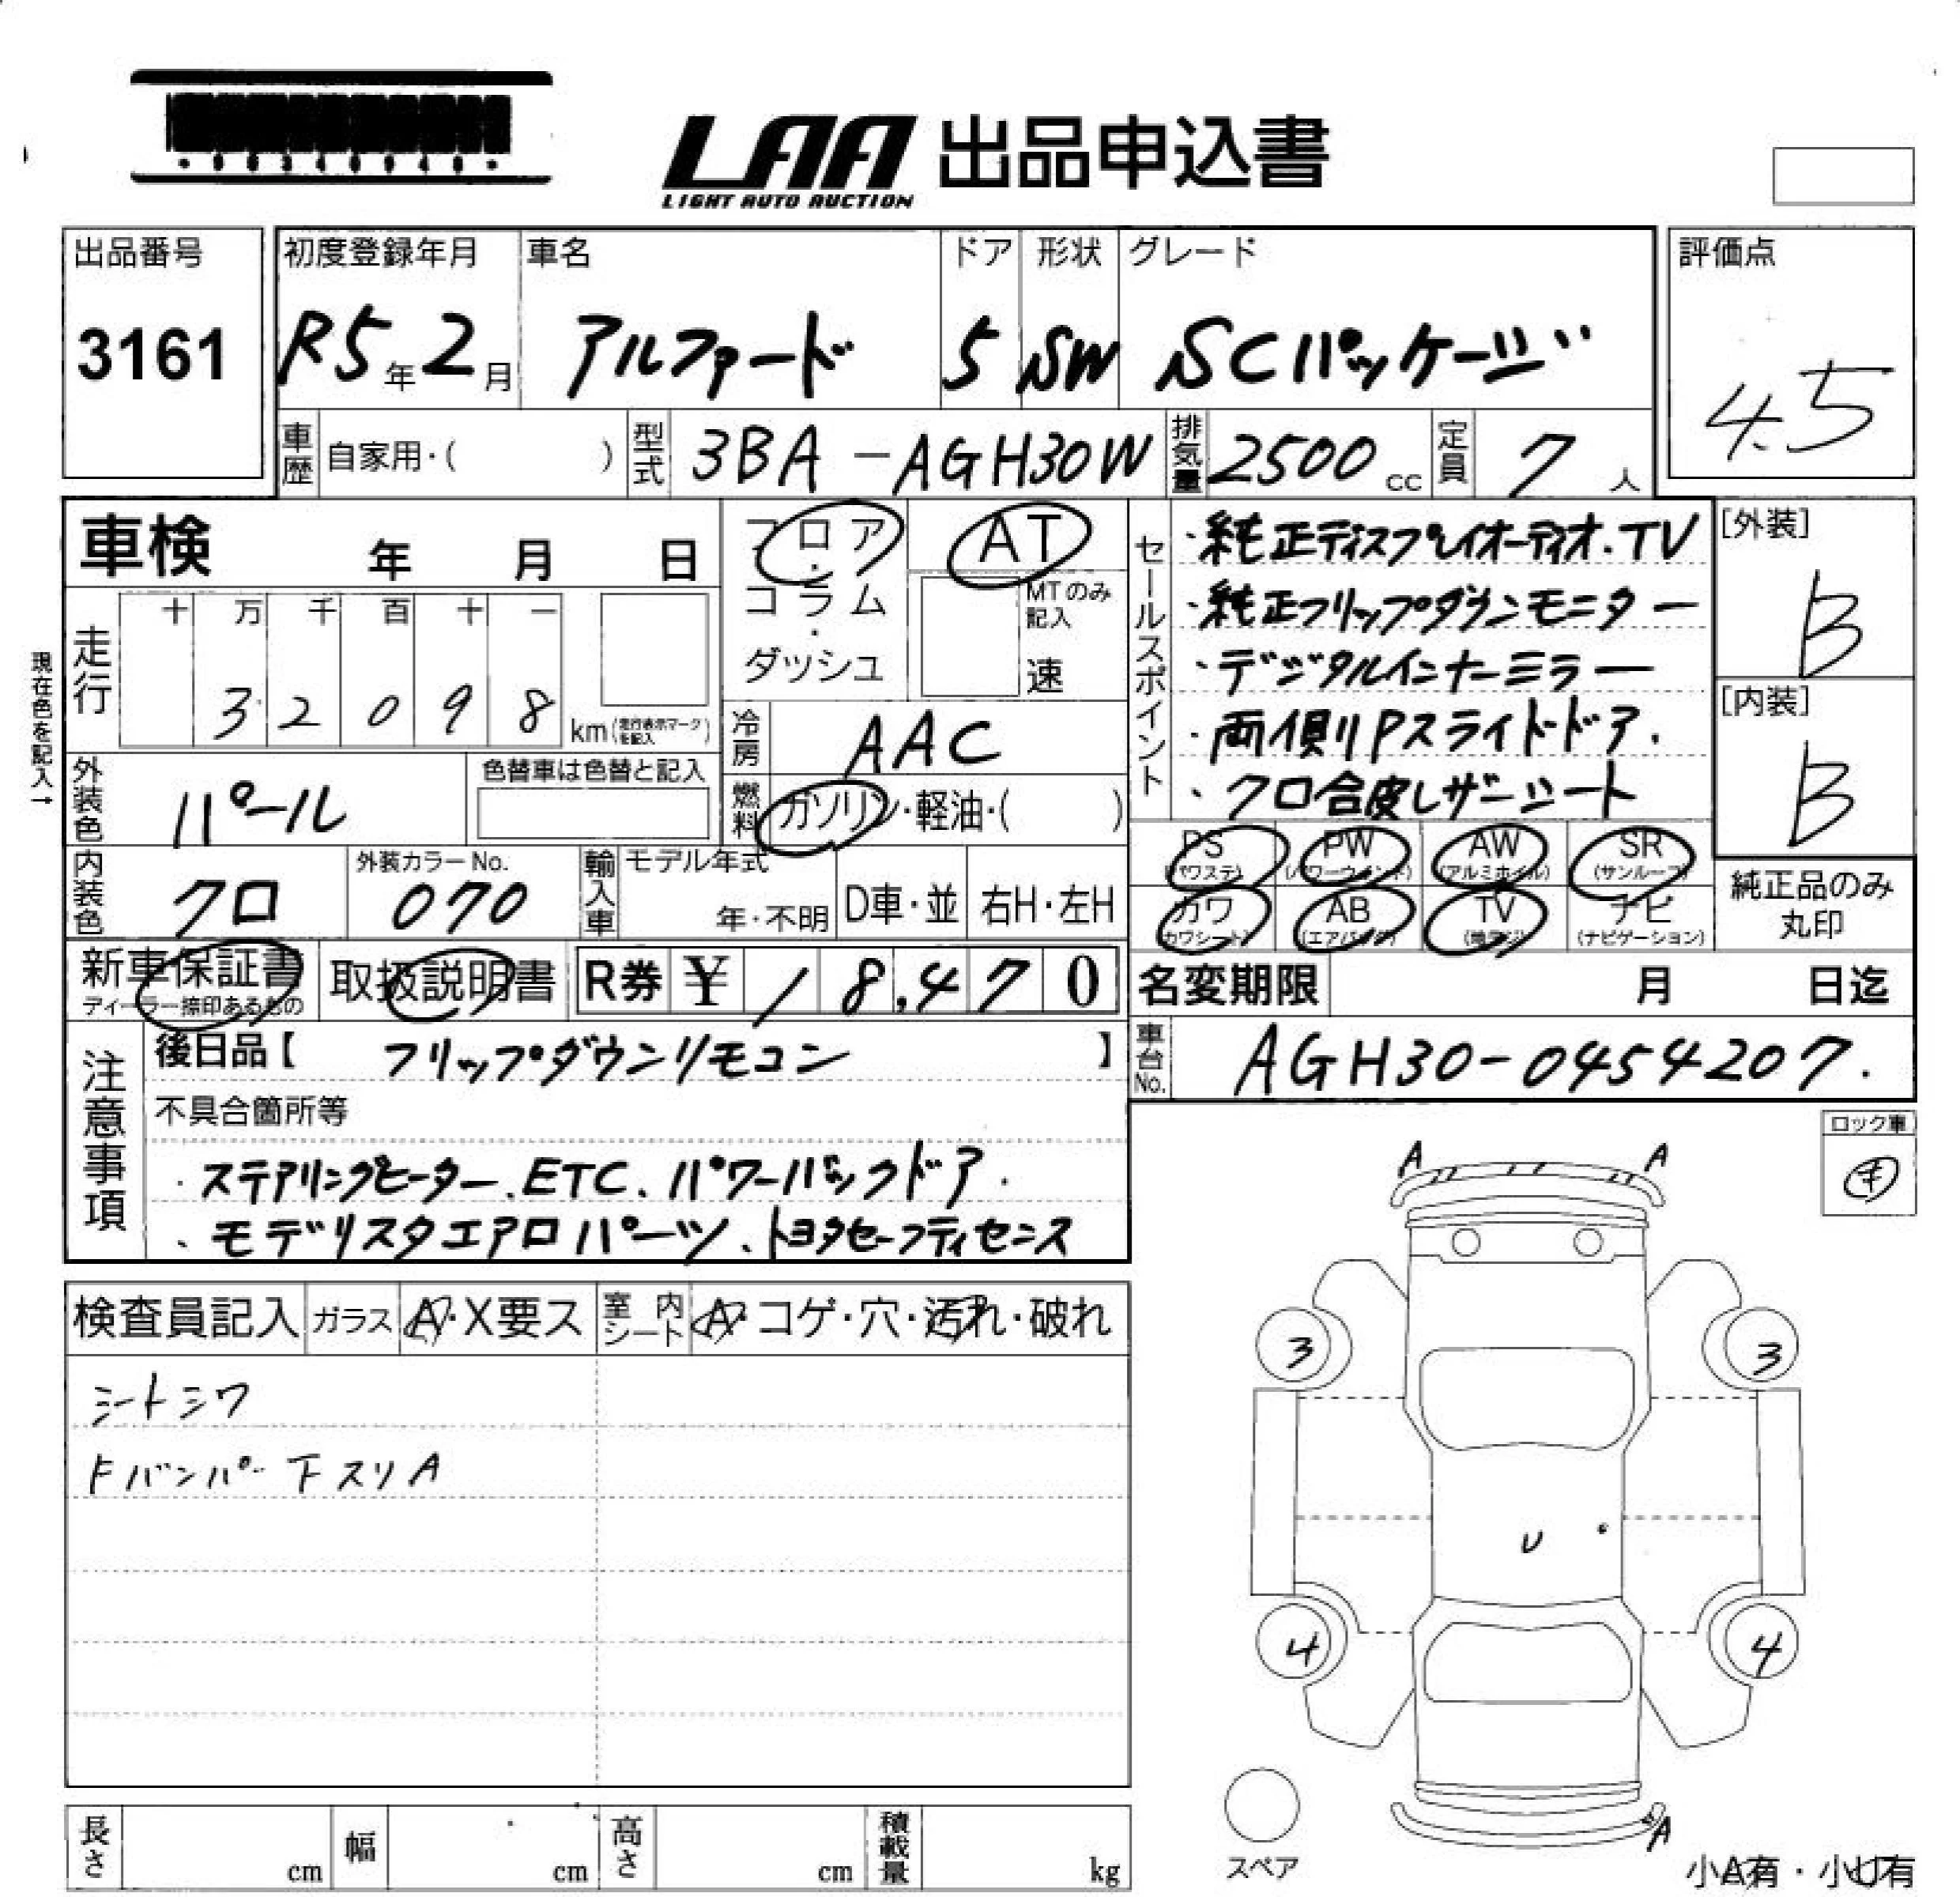 LAA 出品申込書
LIGHT AUTO AUCTION
出品番号
3161
初度登録年月
R5年2月
車名
アルファード
ドア
5
形状
SW
グレード
SCパッケージ
評価点
4.5
車歴
自家用・( )
型式
3BA-AGH30W
排気量
2500cc
定員
7人
車検 年 月 日
フロア・コラム・ダッシュ
AT
MTのみ記入
速
現在色を記入→
走行
十 万 千 百 十 一
3 2 0 9 8
km(走行表示マークを記入)
冷房
AAC
外装色
パール
色替車は色替と記入
燃料
ガソリン・軽油・( )
内装色
クロ
外装カラーNo.
070
輸入車
モデル年式
年・不明
D車・並
右H・左H
セールスポイント
・純正ディスプレイオーディオ.TV
・純正フリップダウンモニター
・デジタルインナーミラー
・両側Pスライドドア.
・クロ合皮レザーシート
[外装]
B
[内装]
B
PS(パワステ)
PW(パワーウィンド)
AW(アルミホイル)
SR(サンルーフ)
カワ(カワシート)
AB(エアバッグ)
TV(地デジ)
ナビ(ナビゲーション)
純正品のみ
丸印
新車保証書
ディーラー捺印あるもの
取扱説明書
R券 ¥ 18,470
名変期限 月 日迄
車台No.
AGH30-0454207.
注意事項
後日品【 フリップダウンリモコン 】
不具合箇所等
・ステアリングヒーター、ETC、パワーバックドア.
、モデリスタエアロパーツ、トヨタセーフティセンス
ロック車
検査員記入
ガラス
A・X要ス
室内シート
A・コゲ・穴・汚れ・破れ
シートシワ
Fバンパー下スリA
A A
3 3
U
4 4
A
スペア
小A有・小U有
長さ cm
幅 cm
高さ cm
積載量 kg